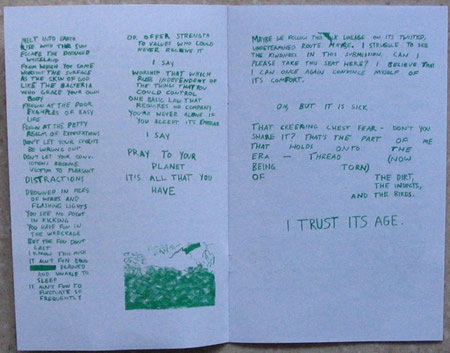 MELT INTO EARTH
RISE WITH THE SUN
ESCAPE THE DOOMED
WASTELAND
FROM WHICH YOU COME
WORKING THE SURFACE
AS THE SKIN OF GOD
LIKE THE BACTERIA
WHO GRAZE YOUR OWN
BODY
FROWN AT THE POOR
EXAMPLES OF EASY
LIFE
FROWN AT THE PETTY
REALM OF EXPECTATIONS
DON'T LET YOUR SPIRITS
BE WRUNG OUT
DON'T LET YOUR CONV-
ICTIONS BECOME
VICTIM TO PLEASANT
DISTRACTIONS
DROWNED IN PILES
OF WIRES AND
FLASHING LIGHTS
YOU SEE NO POINT
IN KICKING
YOU HAVE FUN IN
THE WRECKAGE
BUT THE FUN DON'T
LAST
I KNOW THIS MUCH
IT AIN'T FUN BEING
BURNED
AND UNABLE TO
SLEEP
IT AIN'T FUN TO
FLUCTUATE SO
FREQUENTLY
OR OFFER STRENGTH
TO VALUES WHO COULD
NEVER RECEIVE IT
I SAY
WORSHIP THAT WHICH
RULES INDEPENDENT OF
THE THINGS THAT YOU
COULD CONTROL
ONE BASIC LAW THAT
REQUIRES NO COMPANY
YOU'RE NEVER ALONE IF
YOU ACCEPT ITS EMBRACE
I SAY
PRAY TO YOUR
PLANET
IT IS ALL THAT YOU
HAVE
MAYBE WE FOLLOW THE LINEAGE ON ITS TWISTED,
UNDETERMINED ROUTE. MAYBE. I STRUGGLE TO SEE
THE KINDNESS IN THIS SUBMISSION. CAN I
PLEASE TAKE THIS SEAT HERE? I BELIEVE THAT
I CAN ONCE AGAIN CONVINCE MYSELF OF
ITS COMFORT.
OH, BUT IT IS SICK.
THAT CREEPING CHEST FEAR – DON'T YOU
SHARE IT? THAT'S THE PART OF ME
THAT HOLDS ONTO THE
ERA – THREAD (NOW
BEING TORN)
OF THE DIRT,
THE INSECTS,
AND THE BIRDS.
I TRUST ITS AGE.